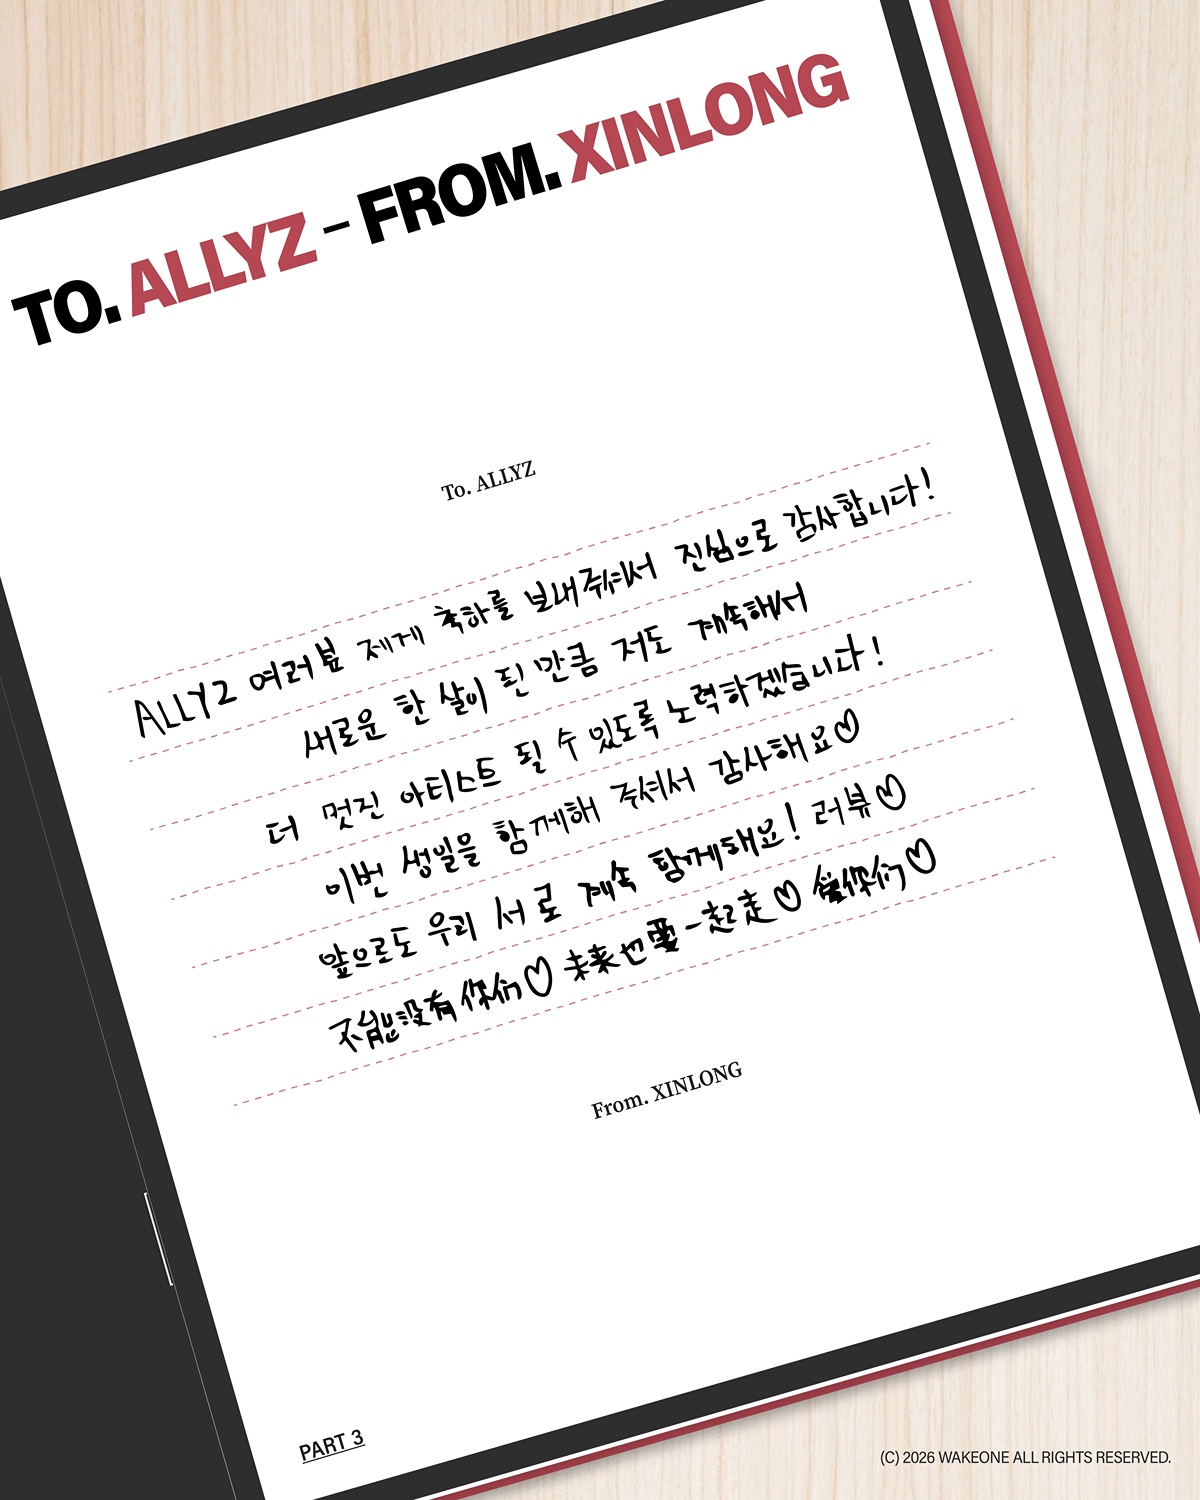 TO. ALLYZ – FROM. XINLONG
To. ALLYZ
ALLYZ 여러분 제게 축하를 보내주셔서 진심으로 감사합니다!
새로운 한 살이 된 만큼 저도 계속해서
더 멋진 아티스트 될 수 있도록 노력하겠습니다!
이번 생일을 함께해 주셔서 감사해요♡
앞으로도 우리 서로 계속 함께해요! 러뷰♡
不能没有你们♡ 未来也要一起走♡ 爱你们♡
From. XINLONG
PART 3
(C) 2026 WAKEONE ALL RIGHTS RESERVED.